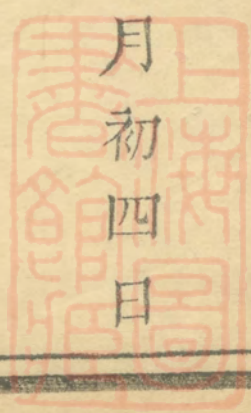 月初四日
上海圖
書館藏